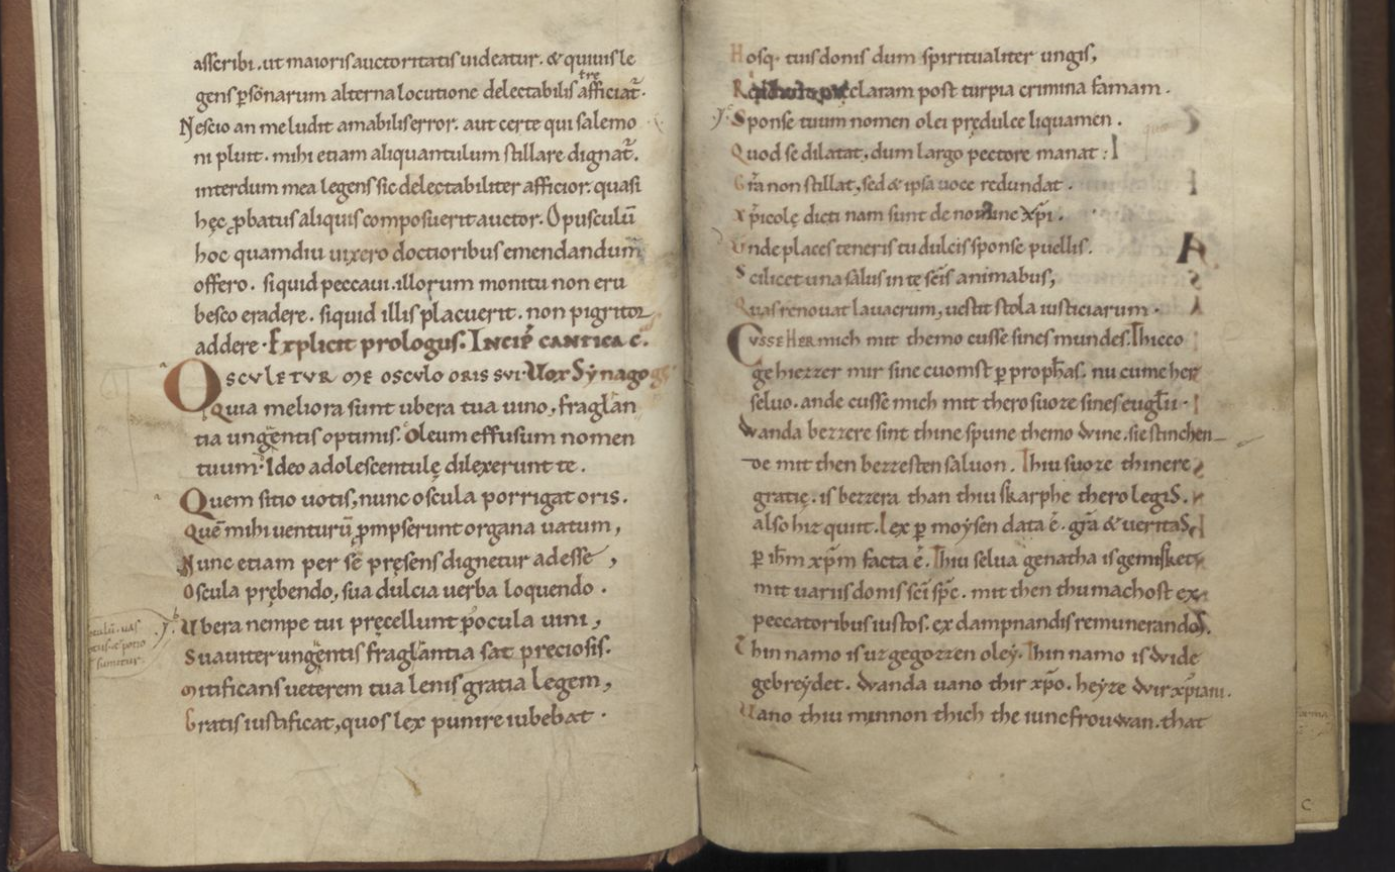 asscribi. ut maioris auctoritatis uideatur. & quiuis le
gens psonarum alterna locutione delectabilis afficiat̃.
tre
Nescio an me ludit amabilis error. aut certe qui salemo
ni pluit. mihi etiam aliquantulum stillare dignat̃.
interdum mea legens sic delectabiliter afficior. quasi
hęc ꝓbatus aliquis composuerit auctor. Opusculū
hoc quamdiu uixero doctioribus emendandum
offero. siquid peccaui. illorum monitu non eru
besco eradere. siquid illis placuerit. non pigritor
addere. Explicit prologus. Incip̄ cantica c̄.
OSCVLETVR ME OSCULO ORIS SVI. Uox Synagogę
Quia meliora sunt ubera tua uino, fraglan
tia ungentis optimis. Oleum effusum nomen
tuum. Ideo adolescentulę dilexerunt te.
Quem sitio uotis, nunc oscula porrigat oris.
Quē mihi uenturū ꝓmpserunt organa uatum,
Nunc etiam per se pręsens dignetur adesse,
Oscula prębendo, sua dulcia uerba loquendo.
Ubera nempe tui pręcellunt pocula uini,
Suauiter ungentis fraglantia sat preciosis.
Mitificans ueterem tua lenis gratia legem,
Gratis iustificat, quos lex punire iubebat.
Hosq. tuis donis dum spiritualiter ungis,
pręclaram post turpia crimina famam.
Sponse tuum nomen olei prędulce liquamen.
Quod se dilatat, dum largo pectore manat:
Gr̄a non stillat, sed & ipsa uoce redundat.
Xp̄icolę dicti nam sunt de nomine Xp̄i.
Unde places teneris tu dulcis sponse puellis.
Scilicet una salus in te sc̄is animabus,
Quas renouat lauacrum, uestit stola iusticiarum.
CUSSE HER mich mit themo cusse sines mundes. Thicco
gehiezzer mir sine cuomst ꝑ proph̄as. nu cume her
seluo. ande cusse mich mit thero suoze sines eug̅lii.
Wanda bezzere sint thine spune themo wine. sie stinchen
de mit then bezzesten saluon. Thiu suoze thinere
gratię. is bezzera than thiu skarphe thero legis.
also hiz quit. Lex ꝑ moẏsen data ē. gr̄a & ueritas
ꝑ ih̄m xp̄m facta ē. Thiu selua genatha is gemisket
mit uariis donis sc̄i sp̄c. mit then thu machost ex
peccatoribus iustos. ex dampnandis remunerandos.
Thin namo is uz gegozzen oley. Thin namo is wide
gebreẏdet. Wanda uano thir xp̄o. heẏze wir xp̄iani.
Uano thiu minnon thich the iuncfrouwan. that
C